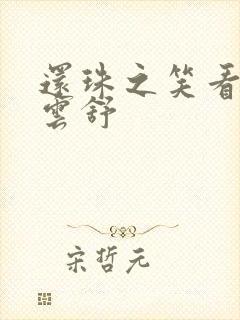 還珠之笑看
雲舒
宋哲元